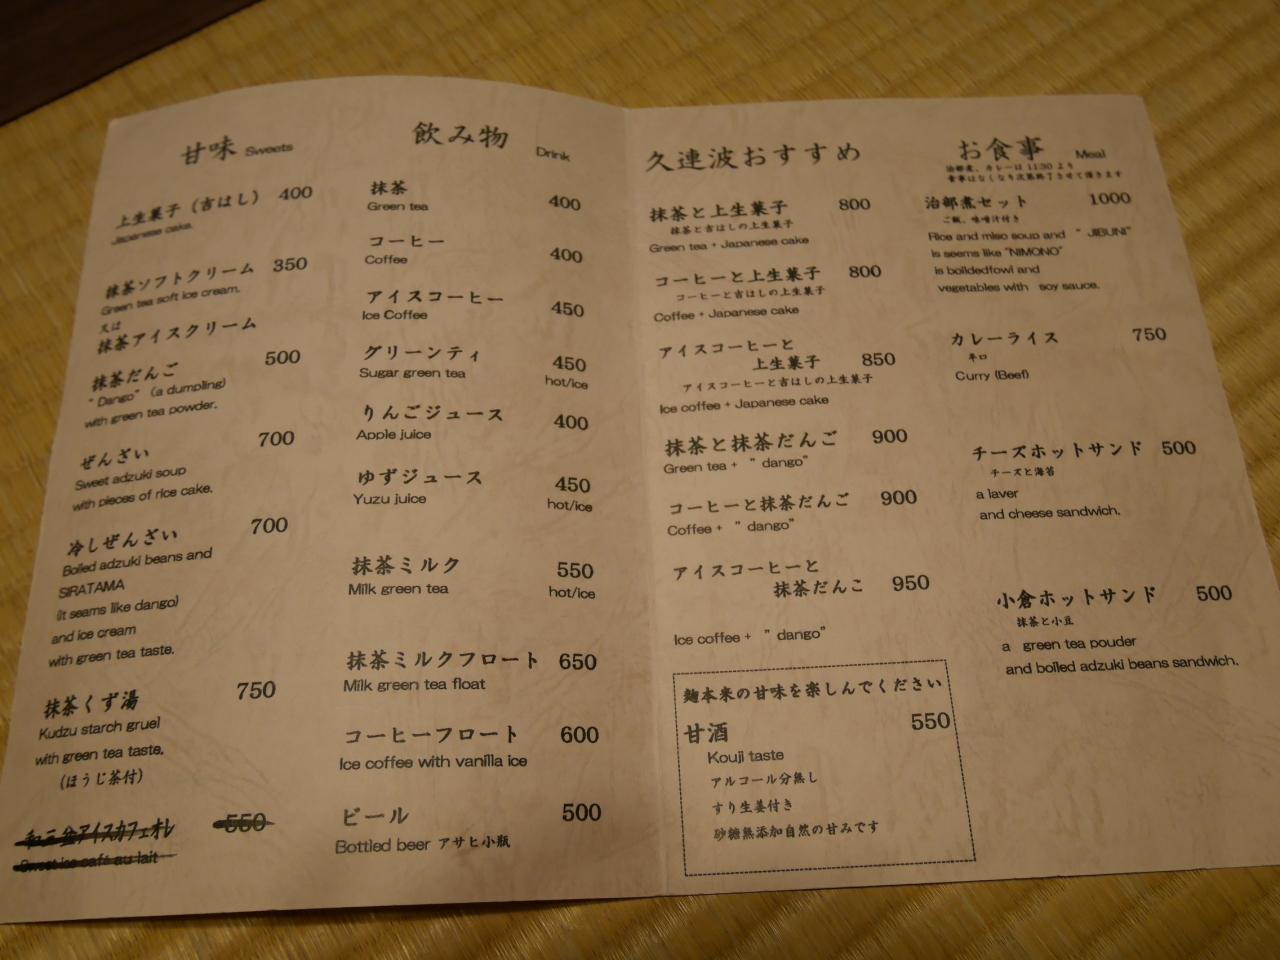 甘味 Sweets
上生菓子（吉はし） 400
Japanese cake.
抹茶ソフトクリーム 350
Green tea soft ice cream.
又は
抹茶アイスクリーム
抹茶だんご 500
"Dango" (a dumpling)
with green tea powder.
ぜんざい 700
Sweet adzuki soup
with pieces of rice cake.
冷しぜんざい 700
Boiled adzuki beans and
SIRATAMA
(it seams like dango)
and ice cream
with green tea taste.
抹茶くず湯 750
Kudzu starch gruel
with green tea taste.
（ほうじ茶付）
和三盆アイスカフェオレ 550
Sweet ice café au lait
飲み物 Drink
抹茶 400
Green tea
コーヒー 400
Coffee
アイスコーヒー 450
Ice Coffee
グリーンティ 450
Sugar green tea hot/ice
りんごジュース 400
Apple juice
ゆずジュース 450
Yuzu juice hot/ice
抹茶ミルク 550
Milk green tea hot/ice
抹茶ミルクフロート 650
Milk green tea float
コーヒーフロート 600
Ice coffee with vanilla ice
ビール 500
Bottled beer アサヒ小瓶
久連波おすすめ
抹茶と上生菓子 800
抹茶と吉はしの上生菓子
Green tea + Japanese cake
コーヒーと上生菓子 800
コーヒーと吉はしの上生菓子
Coffee + Japanese cake
アイスコーヒーと
上生菓子 850
アイスコーヒーと吉はしの上生菓子
Ice coffee + Japanese cake
抹茶と抹茶だんご 900
Green tea + " dango"
コーヒーと抹茶だんご 900
Coffee + " dango"
アイスコーヒーと
抹茶だんこ 950
Ice coffee + " dango"
麹本来の甘味を楽しんでください
甘酒 550
Kouji taste
アルコール分無し
すり生姜付き
砂糖無添加自然の甘みです
お食事 Meal
治部煮、カレーは 11:30 より
食事はなくなり次第終了させて頂きます
治部煮セット 1000
ご飯、味噌汁付き
Rice and miso soup and " JIBUNI"
is seems like "NIMONO"
is boildedfowl and
vegetables with soy sauce.
カレーライス 750
辛口
Curry (Beef)
チーズホットサンド 500
チーズと海苔
a laver
and cheese sandwich.
小倉ホットサンド 500
抹茶と小豆
a green tea pouder
and boiled adzuki beans sandwich.